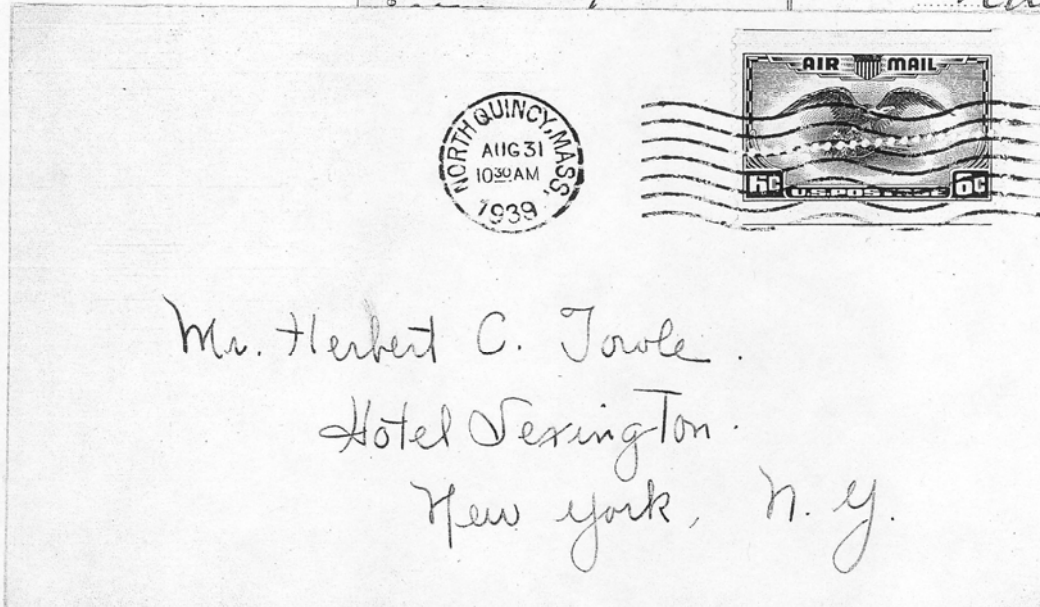 AIR MAIL
NORTH QUINCY, MASS.
AUG 31
10 30 AM
1939
6¢ U.S. POSTAGE 6¢
Mr. Herbert C. Towle.
Hotel Lexington.
New York, N. Y.